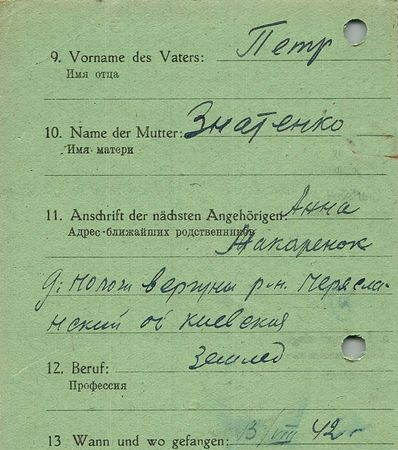 9. Vorname des Vaters: Петр
Имя отца
10. Name der Mutter: Знатенко
Имя матери
11. Anschrift der nächsten Angehörigen: Анна
Адрес ближайших родственников Макаренок
д: вергуны р-н. Переясла-
нский об киевская
12. Beruf: Землед
Профессия
13 Wann und wo gefangen: 13/VIII 42 г